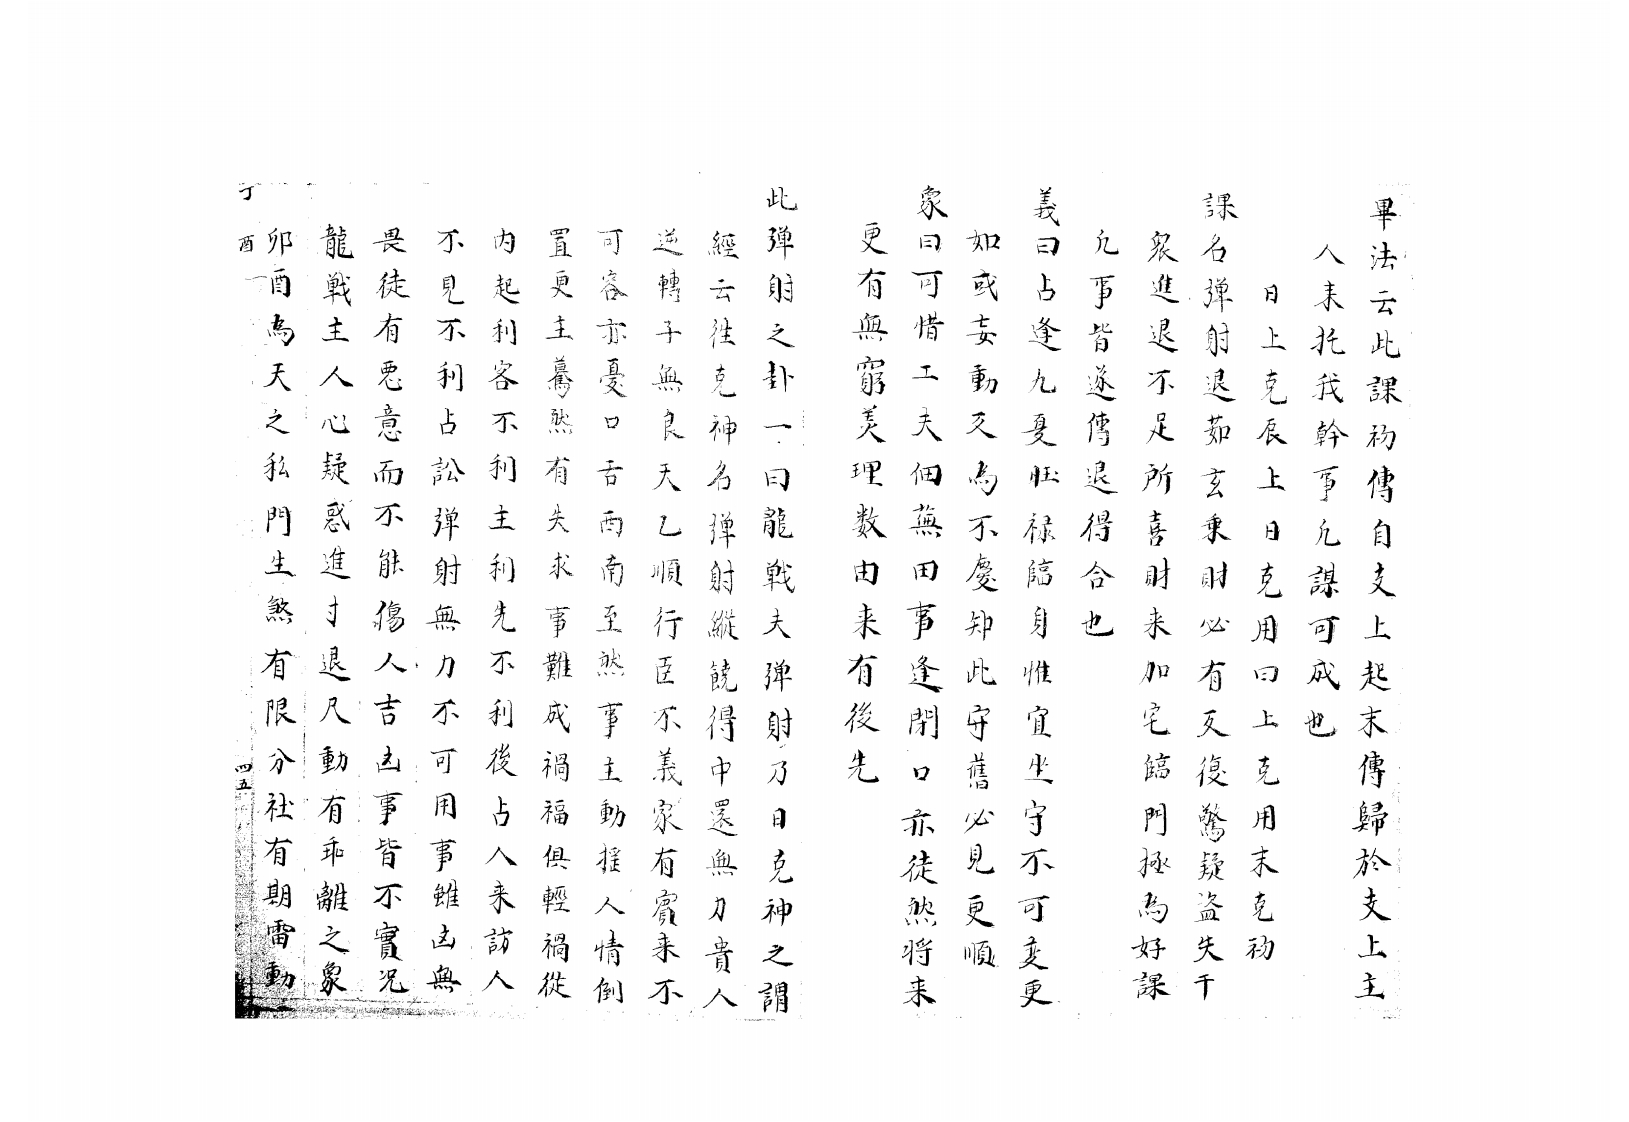 畢法云此課初傳自支上起末傳歸於支上主
人来托我幹事凡謀可成也
日上克辰上日克用曰上克用末克初
課名弹射退茹玄乗財必有反復驚疑盗失干
衆進退不足所喜財来加宅臨門極為好課
凡事皆遂傳退得合也
義曰占逢九夏旺禄臨身惟宜坐守不可変更
如或妄動反為不慶知此守舊必見更順
象曰可惜工夫佃蕪田事逢閉口亦徒然将来
更有無窮美理数由来有後先
此弹射之卦一曰龍戦夫弹射乃日克神之謂
經云徃克神名弹射縱饒得中還無力貴人
逆轉子無良天乙順行臣不義家有賔来不
可容亦憂口舌西南至然事主動揺人情倒
置更主驀然有失求事難成禍福俱輕禍從
内起利客不利主利先不利後占人来訪人
不見不利占訟弹射無力不可用事雖凶無
畏徒有惡意而不能傷人吉凶事皆不實况
龍戦主人心疑惑進寸退尺動有乖離之象
卯酉為天之私門生煞有限分社有期雷動
丁酉
四五